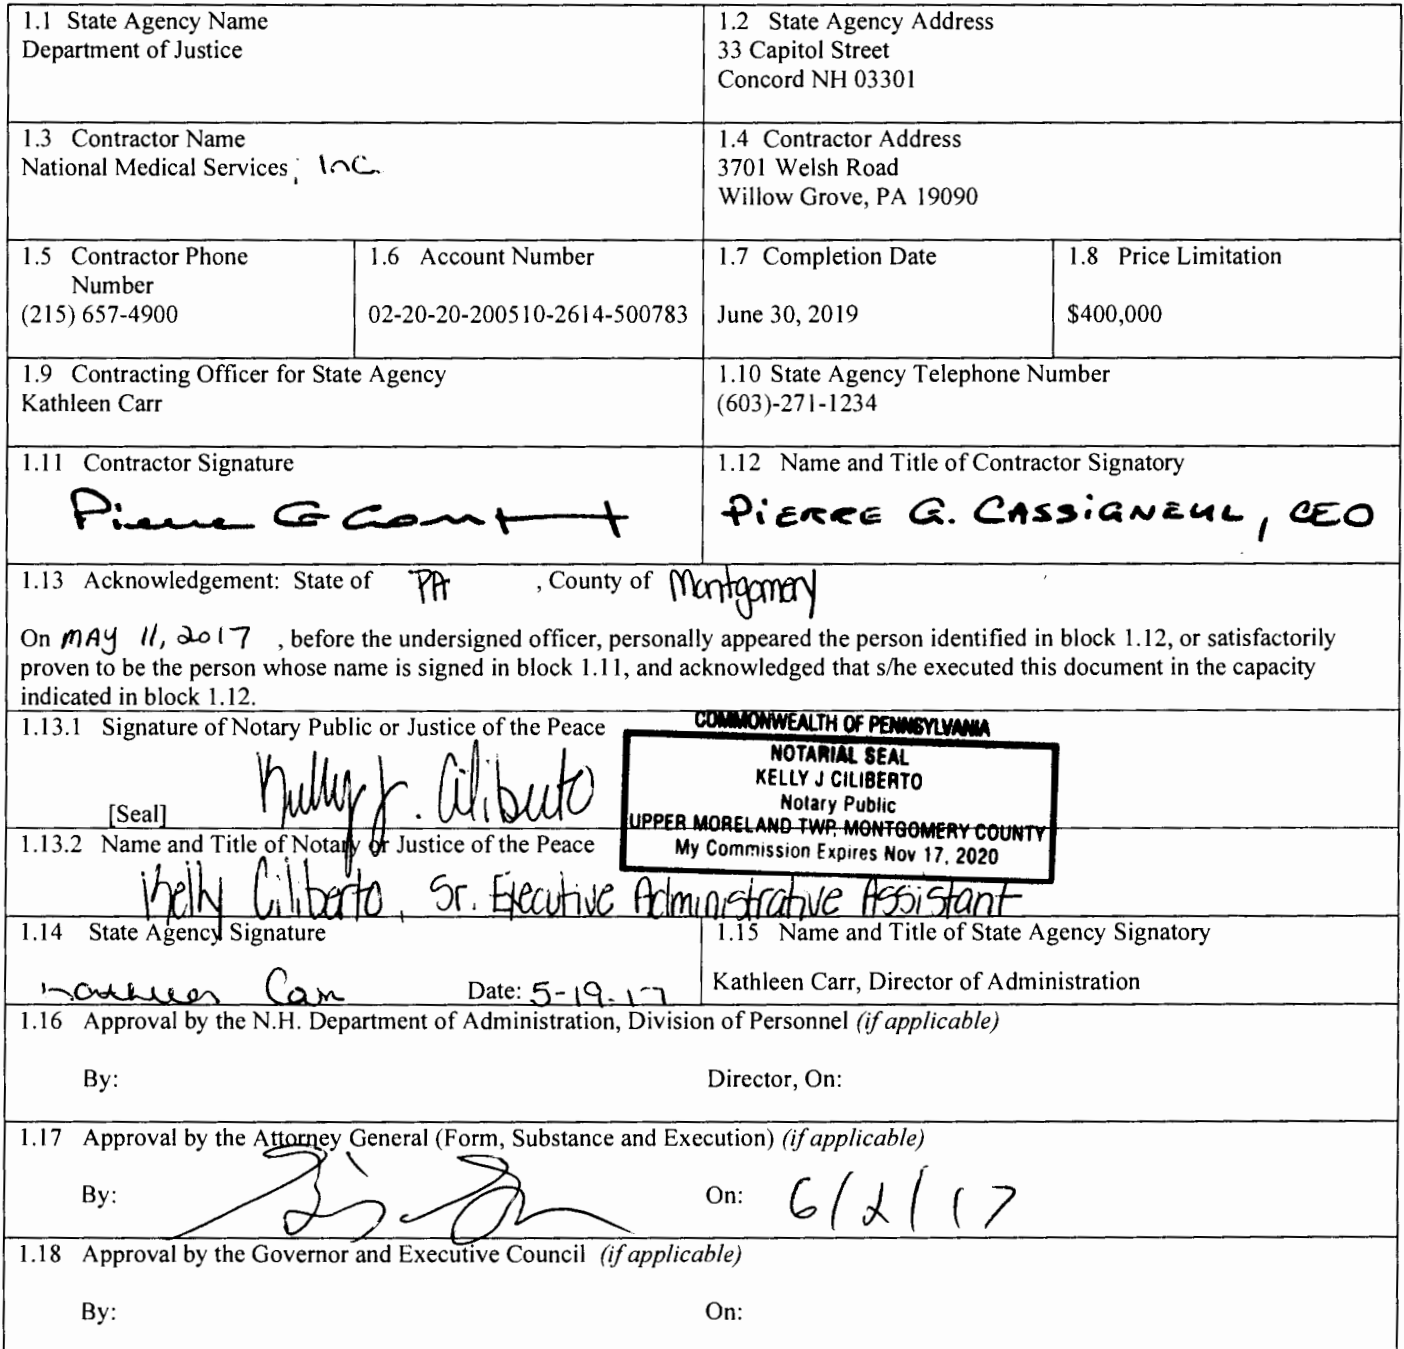 1.1 State Agency Name
Department of Justice
1.2 State Agency Address
33 Capitol Street
Concord NH 03301
1.3 Contractor Name
National Medical Services, Inc.
1.4 Contractor Address
3701 Welsh Road
Willow Grove, PA 19090
1.5 Contractor Phone
Number
(215) 657-4900
1.6 Account Number
02-20-20-200510-2614-500783
1.7 Completion Date
June 30, 2019
1.8 Price Limitation
$400,000
1.9 Contracting Officer for State Agency
Kathleen Carr
1.10 State Agency Telephone Number
(603)-271-1234
1.11 Contractor Signature
Pierre G
1.12 Name and Title of Contractor Signatory
PiERRE G. CASSiGNEUL, CEO
1.13 Acknowledgement: State of PA , County of Montgomery
On MAY 11, 2017 , before the undersigned officer, personally appeared the person identified in block 1.12, or satisfactorily
proven to be the person whose name is signed in block 1.11, and acknowledged that s/he executed this document in the capacity
indicated in block 1.12.
1.13.1 Signature of Notary Public or Justice of the Peace
Kelly J. Ciliberto
[Seal]
COMMONWEALTH OF PENNSYLVANIA
NOTARIAL SEAL
KELLY J CILIBERTO
Notary Public
UPPER MORELAND TWP, MONTGOMERY COUNTY
My Commission Expires Nov 17, 2020
1.13.2 Name and Title of Notary or Justice of the Peace
Kelly Ciliberto, Sr. Executive Administrative Assistant
1.14 State Agency Signature
Kathleen Carr Date: 5-19-17
1.15 Name and Title of State Agency Signatory
Kathleen Carr, Director of Administration
1.16 Approval by the N.H. Department of Administration, Division of Personnel (if applicable)
By: Director, On:
1.17 Approval by the Attorney General (Form, Substance and Execution) (if applicable)
By: On: 6/2/17
1.18 Approval by the Governor and Executive Council (if applicable)
By: On: